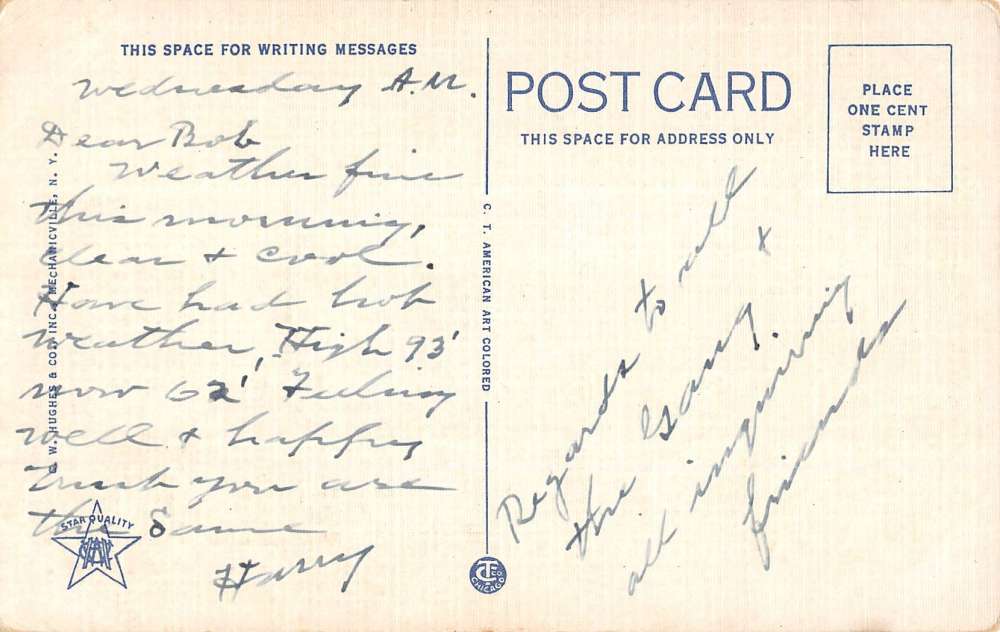 THIS SPACE FOR WRITING MESSAGES
Wednesday A.M.
Dear Bob
Weather fine
this morning,
clear + cool.
Have had hot
weather, High 93'
now 62' Feeling
well + happy
trust you are
the same
Harry
STAR QUALITY
W. HUGHES & CO., INC., MECHANICVILLE, N. Y.
C. T. AMERICAN ART COLORED
CHICAGO
POST CARD
THIS SPACE FOR ADDRESS ONLY
PLACE
ONE CENT
STAMP
HERE
Regards to all
the Gang. +
all inquiring
friends